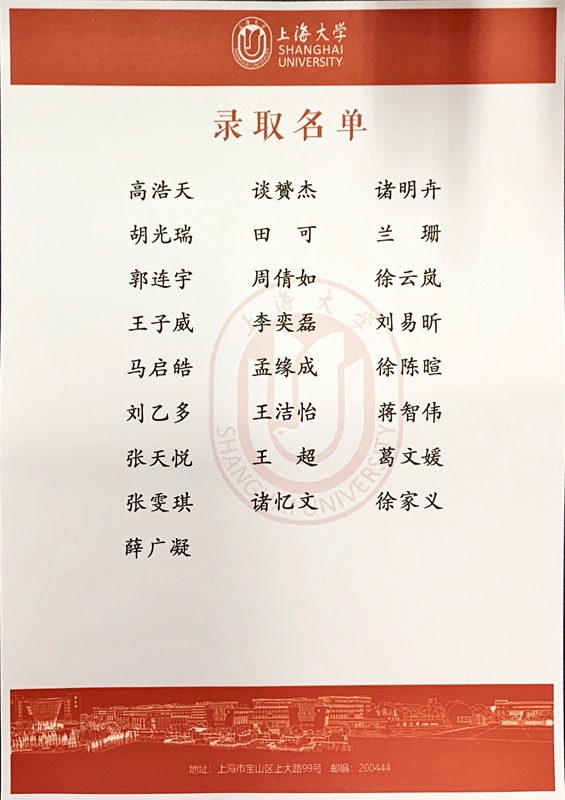 上海大学
SHANGHAI
UNIVERSITY
录取名单
高浩天 谈赟杰 诸明卉
胡光瑞 田 可 兰 珊
郭连宇 周倩如 徐云岚
王子威 李奕磊 刘易昕
马启皓 孟缘成 徐陈暄
刘乙多 王洁怡 蒋智伟
张天悦 王 超 葛文媛
张雯琪 诸忆文 徐家义
薛广凝
上海大学
SHANGHAI UNIVERSITY
地址：上海市宝山区上大路99号 邮编：200444